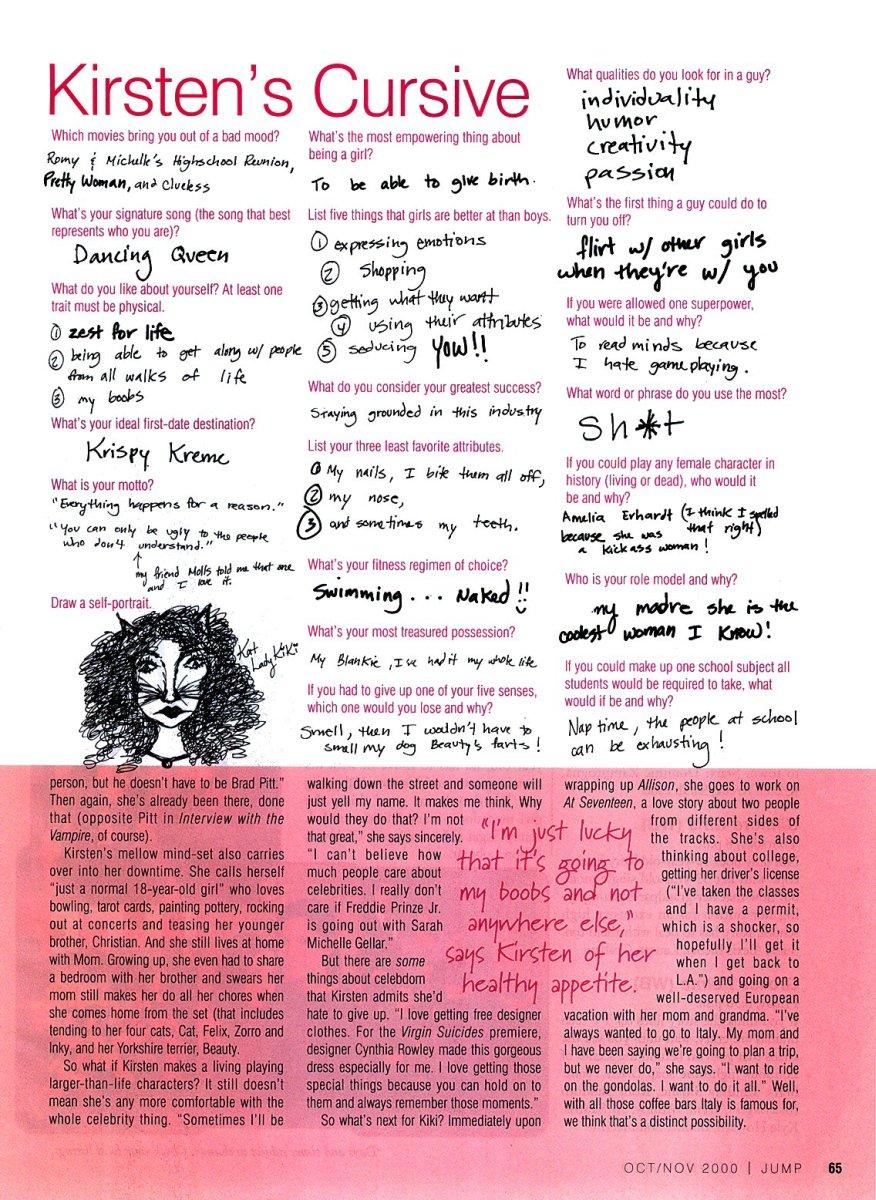 Kirsten's Cursive
Which movies bring you out of a bad mood?
Romy & Michelle's Highschool Reunion,
Pretty Woman, and Clueless
What's your signature song (the song that best
represents who you are)?
Dancing Queen
What do you like about yourself? At least one
trait must be physical.
① zest for life
② being able to get along w/ people
from all walks of life
③ my boobs
What's your ideal first-date destination?
Krispy Kreme
What is your motto?
"Everything happens for a reason."
"You can only be ugly to the people
who don't understand."
my friend Molls told me that one
and I love it.
Draw a self-portrait.
Kat
Lady KiKi
What's the most empowering thing about
being a girl?
To be able to give birth.
List five things that girls are better at than boys.
① expressing emotions
② Shopping
③ getting what they want
④ using their attributes
⑤ seducing YOW!!
What do you consider your greatest success?
Staying grounded in this industry
List your three least favorite attributes.
① My nails, I bite them all off,
② my nose,
③ and sometimes my teeth.
What's your fitness regimen of choice?
Swimming... Naked!!
What's your most treasured possession?
My Blankie, I've had it my whole life
If you had to give up one of your five senses,
which one would you lose and why?
Smell, then I wouldn't have to
smell my dog Beauty's farts!
What qualities do you look for in a guy?
individuality
humor
creativity
passion
What's the first thing a guy could do to
turn you off?
flirt w/ other girls
when they're w/ you
If you were allowed one superpower,
what would it be and why?
To read minds because
I hate gameplaying.
What word or phrase do you use the most?
Sh*t
If you could play any female character in
history (living or dead), who would it
be and why?
Amelia Erhardt (I think I spelled
that right)
because she was
a kickass woman!
Who is your role model and why?
my madre she is the
coolest woman I know!
If you could make up one school subject all
students would be required to take, what
would if be and why?
Nap time, the people at school
can be exhausting!
person, but he doesn't have to be Brad Pitt."
Then again, she's already been there, done
that (opposite Pitt in Interview with the
Vampire, of course).
Kirsten's mellow mind-set also carries
over into her downtime. She calls herself
"just a normal 18-year-old girl" who loves
bowling, tarot cards, painting pottery, rocking
out at concerts and teasing her younger
brother, Christian. And she still lives at home
with Mom. Growing up, she even had to share
a bedroom with her brother and swears her
mom still makes her do all her chores when
she comes home from the set (that includes
tending to her four cats, Cat, Felix, Zorro and
Inky, and her Yorkshire terrier, Beauty.
So what if Kirsten makes a living playing
larger-than-life characters? It still doesn't
mean she's any more comfortable with the
whole celebrity thing. "Sometimes I'll be
walking down the street and someone will
just yell my name. It makes me think, Why
would they do that? I'm not
that great," she says sincerely.
"I can't believe how
much people care about
celebrities. I really don't
care if Freddie Prinze Jr.
is going out with Sarah
Michelle Gellar."
But there are some
things about celebdom
that Kirsten admits she'd
hate to give up. "I love getting free designer
clothes. For the Virgin Suicides premiere,
designer Cynthia Rowley made this gorgeous
dress especially for me. I love getting those
special things because you can hold on to
them and always remember those moments."
So what's next for Kiki? Immediately upon
"I'm just lucky
that it's going to
my boobs and not
anywhere else,"
says Kirsten of her
healthy appetite.
wrapping up Allison, she goes to work on
At Seventeen, a love story about two people
from different sides of
the tracks. She's also
thinking about college,
getting her driver's license
("I've taken the classes
and I have a permit,
which is a shocker, so
hopefully I'll get it
when I get back to
L.A.") and going on a
well-deserved European
vacation with her mom and grandma. "I've
always wanted to go to Italy. My mom and
I have been saying we're going to plan a trip,
but we never do," she says. "I want to ride
on the gondolas. I want to do it all." Well,
with all those coffee bars Italy is famous for,
we think that's a distinct possibility.
OCT/NOV 2000 | JUMP 65